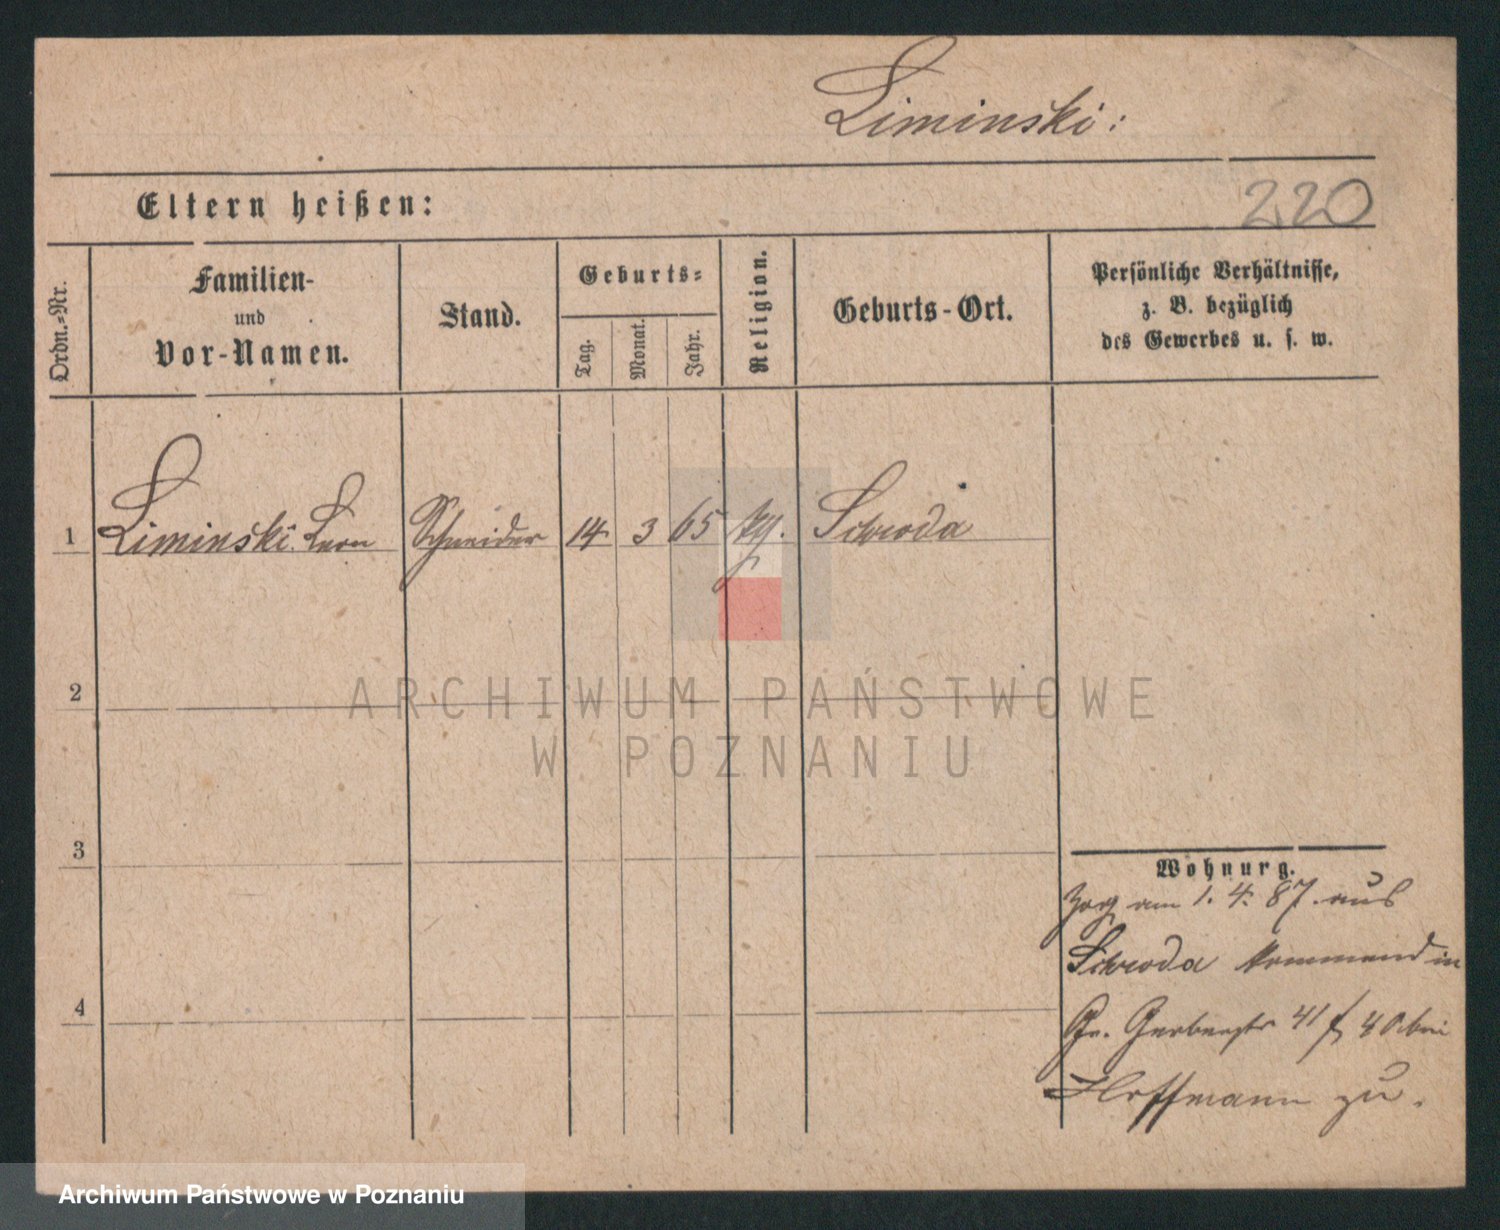 Liminski:
Eltern heißen:
220
Ordn.-Nr.
Familien-
und
Vor-Namen.
Stand.
Geburts-
Tag.
Monat.
Jahr.
Religion.
Geburts-Ort.
Persönliche Verhältnisse,
z. B. bezüglich
des Gewerbes u. s. w.
1 Liminski Leon Schneider 14 3 65 Schroda
2
ARCHIWUM PAŃSTWOWE
W POZNANIU
3
4
Wohnung.
Zog am 1. 4. 87. aus
Schroda kommend in
Gr. Gerberstr 41 bei
Hoffmann zu.
Archiwum Państwowe w Poznaniu